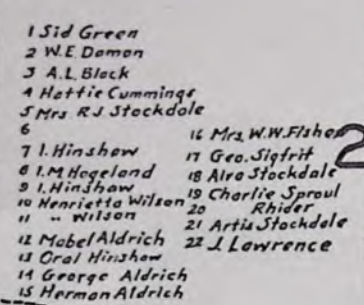 1 Sid Green
2 W.E. Damon
3 A.L. Black
4 Hattie Cummings
5 Mrs R.J Stockdale
6
7 I. Hinshaw
8 I.M Hogeland
9 I. Hinshaw
10 Henrietta Wilson
11 " Wilson
12 Mabel Aldrich
13 Oral Hinshaw
14 George Aldrich
15 Herman Aldrich
16 Mrs. W.W. Fisher
17 Geo. Sigfrit
18 Alra Stockdale
19 Charlie Sproul
20 Rhider
21 Artis Stockdale
22 J Lawrence
2